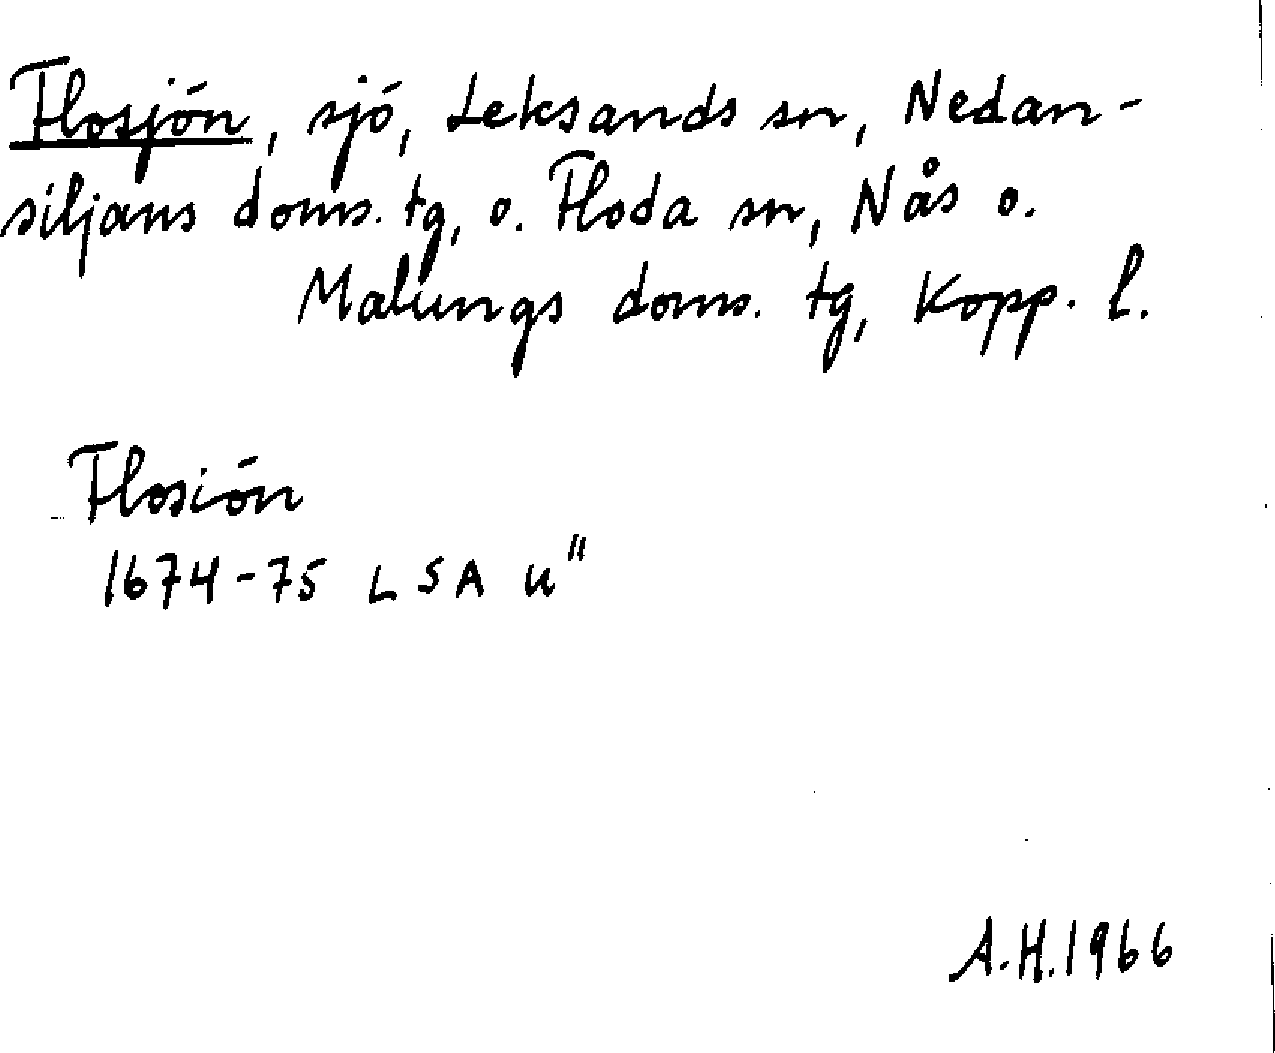 Flosjön, sjö, Leksands sn, Nedan-
siljans doms. tg, o. Floda sn, Nås o.
Malungs doms. tg, Kopp. l.
Flosiön
1674-75 LSA u"
A.H.1966